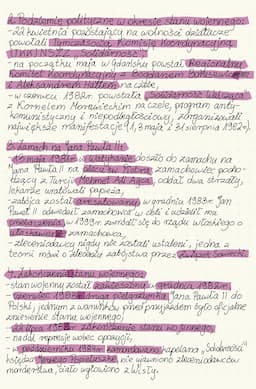 2. Podziemie polityczne w okresie stanu wojennego:
- 22 kwietnia pozostający na wolności działacze
powołali Tymczasową Komisję Koordynacyjną
(TKK) NSZZ „Solidarność”,
- na początku maja w Gdańsku powstał Regionalny
Komitet Koordynacyjny z Bogdanem
i Aleksandrem Hallem na czele,
- w czerwcu 1982r. powstała „Solidarność Walcząca”
z Kornelem Morawieckim na czele, program anty-
komunistyczny i niepodległościowy, zorganizowali
największe manifestacje (1, 3 maja i 31 sierpnia 1982r.).
3. Zamach na Jana Pawła II:
- 13 maja 1981r. w Watykanie doszło do zamachu na
Jana Pawła II na placu św. Piotra, zamachowiec pocho-
dzący z Turcji Mehmet Ali Agca, oddał dwa strzały,
lekarze uratowali papieża,
- zabójca został aresztowany, w grudniu 1983r. Jan
Paweł II odwiedził zamachowca w celi i udzielił mu
przebaczenia, w 1999r. zwrócił się do rządu włoskiego o
ułaskawienie zamachowca,
- zleceniodawcy nigdy nie zostali ustaleni, jedna z
teorii mówi o zleceniu zabójstwa przez Związek Sowiecki.
4. Zakończenie stanu wojennego:
- stan wojenny został zawieszony w grudniu 1982r.,
- czerwiec 1983r. - druga pielgrzymka Jana Pawła II do
Polski, jednym z warunków przed przyjazdem było oficjalne
zniesienie stanu wojennego,
- 22 lipca 1983r. - zakończenie stanu wojennego,
- nadal represje wobec opozycji,
- w październiku 1984r. zamordowano kapelana „Solidarności”
księdza Jerzego Popiełuszkę, nie ujawniono zleceniodawców
morderstwa, ciało wyłowiono z Wisły.